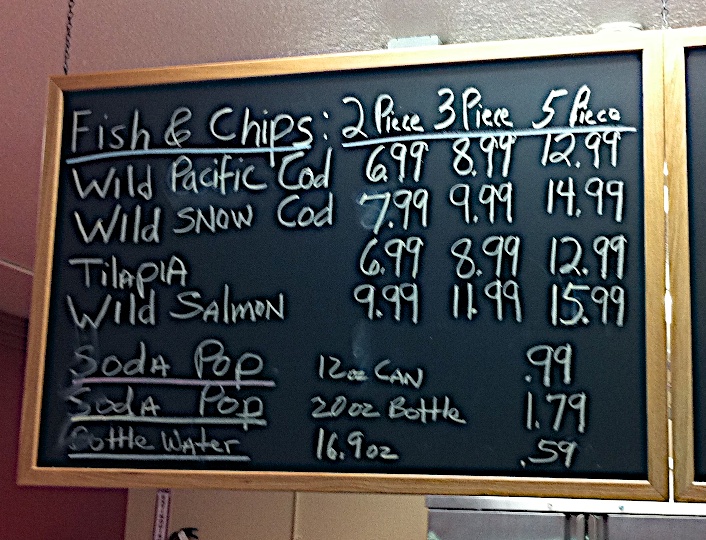 Fish & Chips: 2 Piece 3 Piece 5 Piece
Wild Pacific Cod 6.99 8.99 12.99
Wild Snow Cod 7.99 9.99 14.99
Tilapia 6.99 8.99 12.99
Wild Salmon 9.99 11.99 15.99
Soda Pop 12oz Can .99
Soda Pop 20oz Bottle 1.79
Bottle Water 16.9oz .59